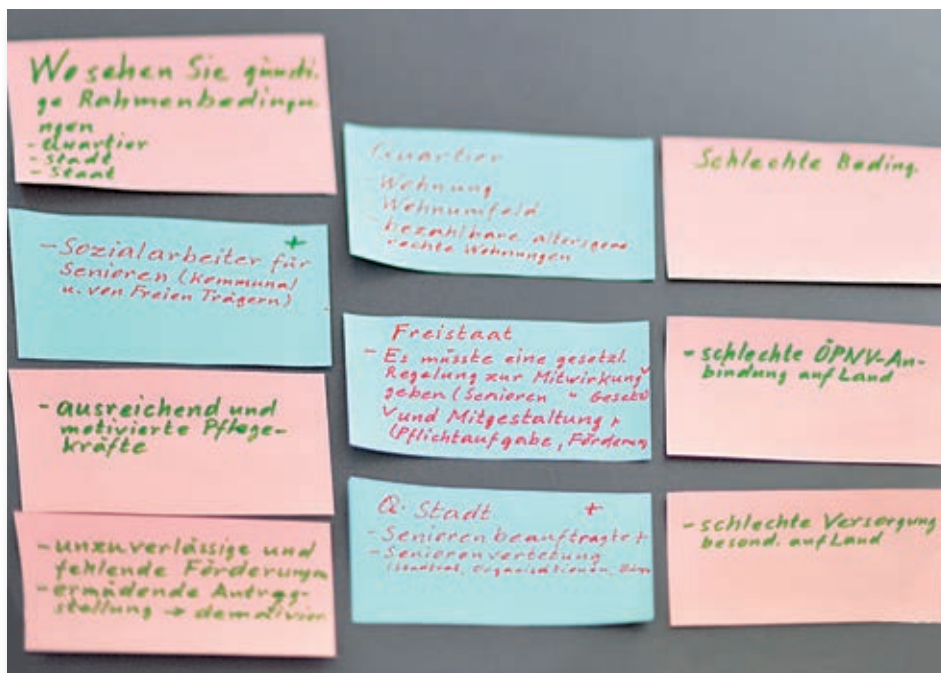 Wo sehen Sie günsti-
ge Rahmenbedingu-
ngen
- Quartier
- Stadt
- Staat
- Sozialarbeiter für +
Senioren (Kommunal
u. von Freien Trägern)
- ausreichend und
motivierte Pflege-
kräfte
- unzuverlässige und
fehlende Förderung
- ermüdende Antrag-
stellung →
Quartier
Wohnung
Wohnumfeld
bezahlbare altersgere
rechte Wohnungen
Freistaat
- Es müsste eine gesetzl.
Regelung zur Mitwirkung
geben (Senioren " Gesetz
und Mitgestaltung +
(Pflichtaufgabe, Förderung
Q. Stadt +
- Seniorenbeauftragte +
- Seniorenvertetung
Organisationen,
Schlechte Beding.
- schlechte ÖPNV-An-
bindung auf Land
- schlechte Versorgung
besond. auf Land